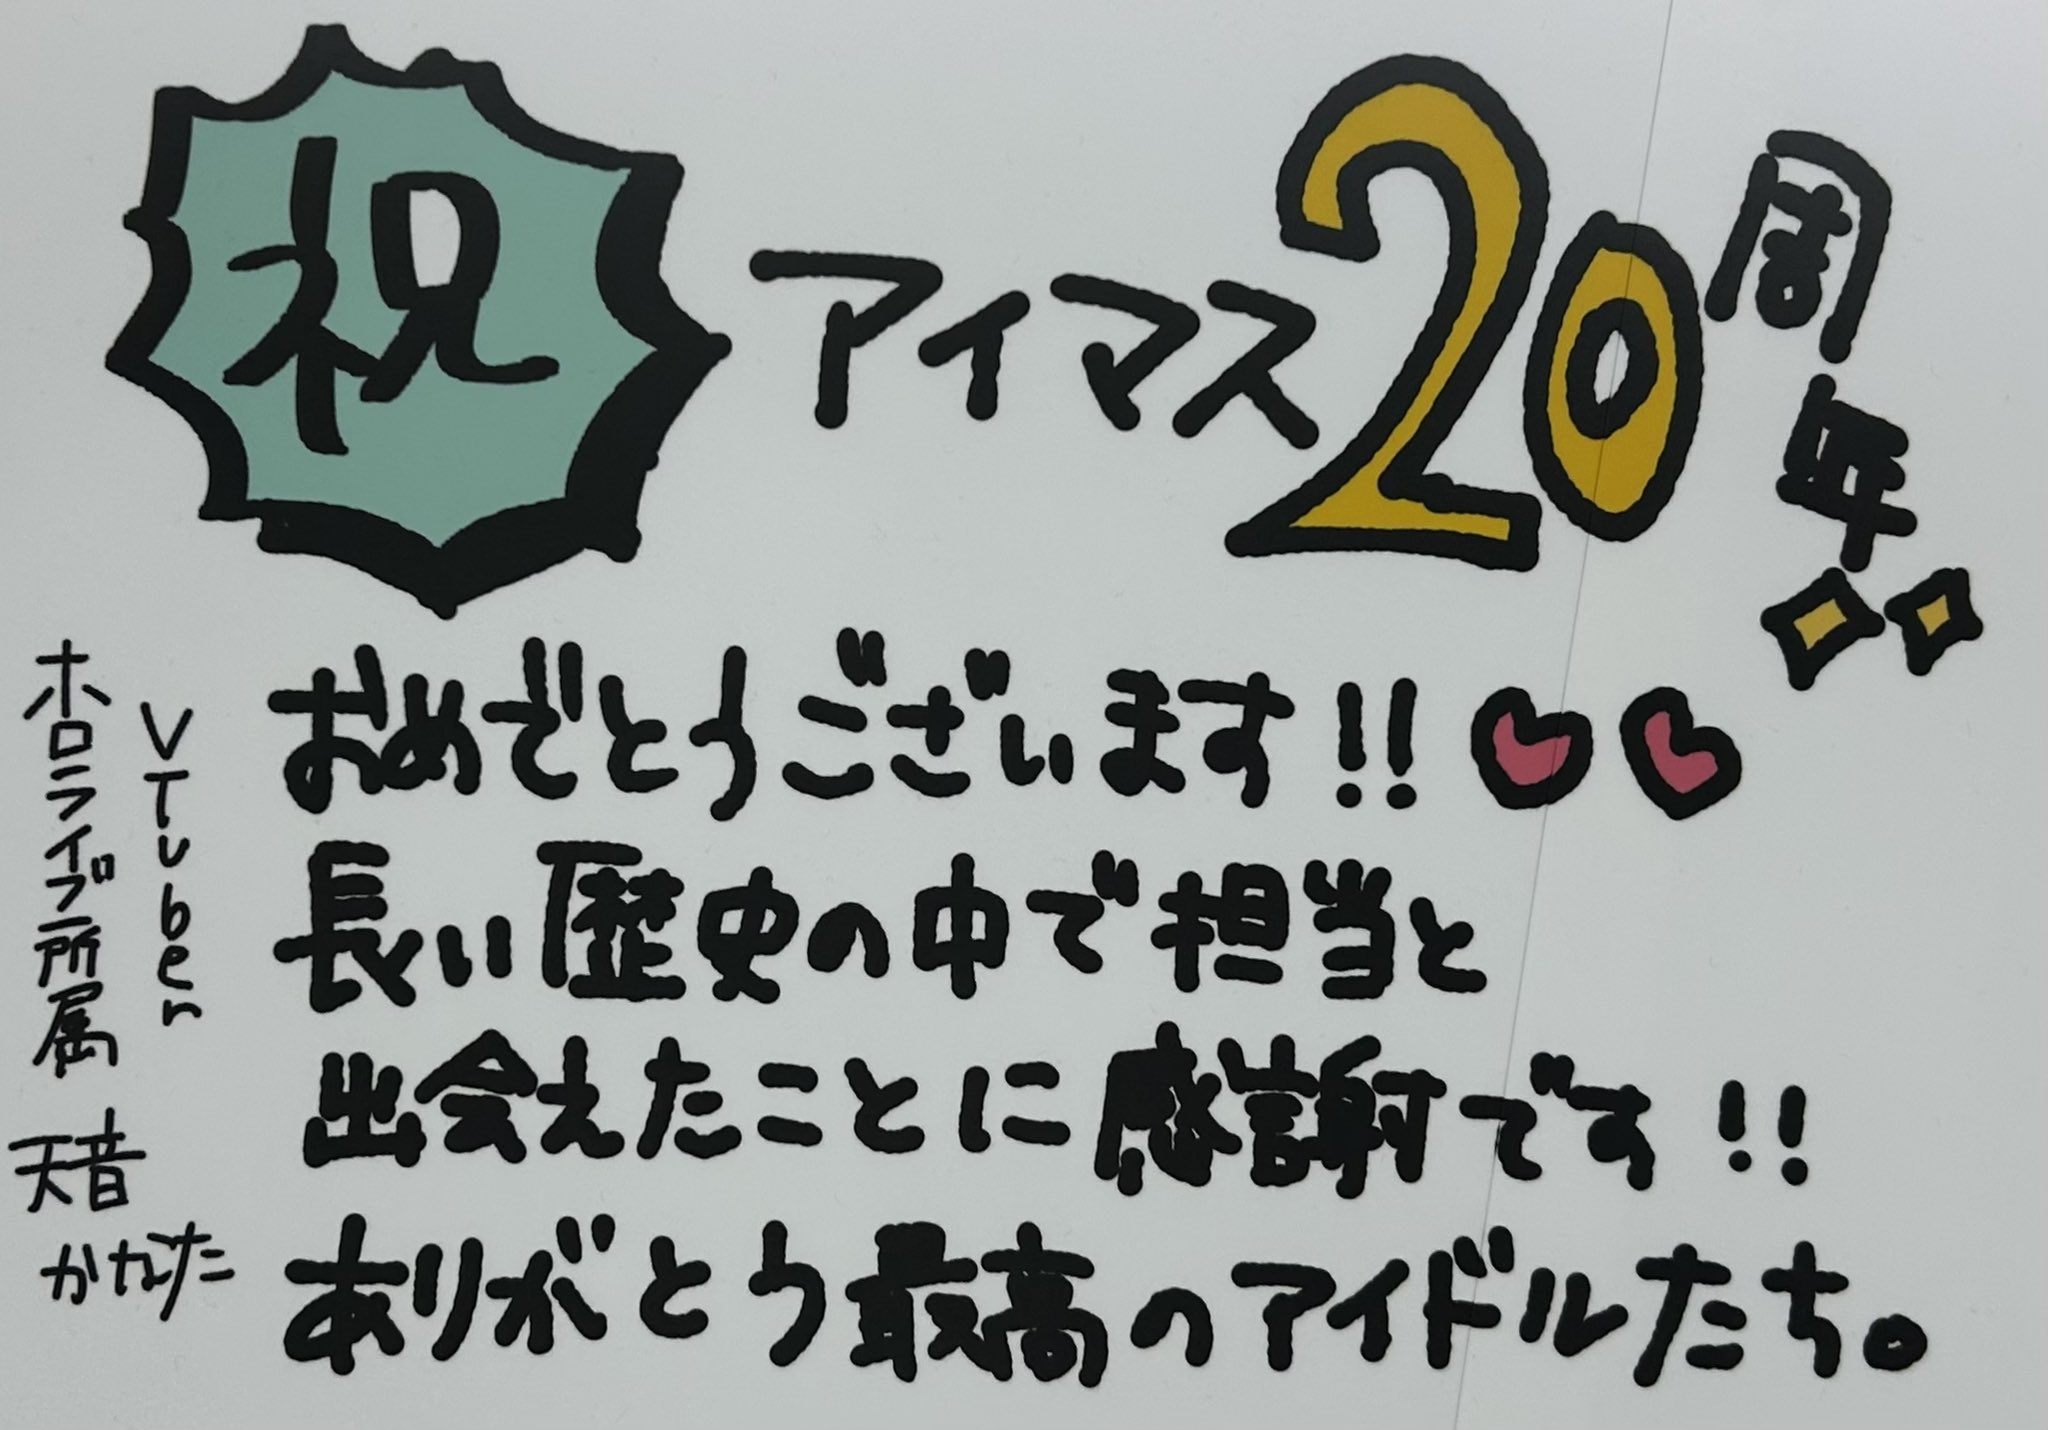 祝 アイマス20周年
おめでとうございます!!
長い歴史の中で担当と
出会えたことに感謝です!!
ありがとう最高のアイドルたち。
VTuber
ホロライブ所属 天音
かなた